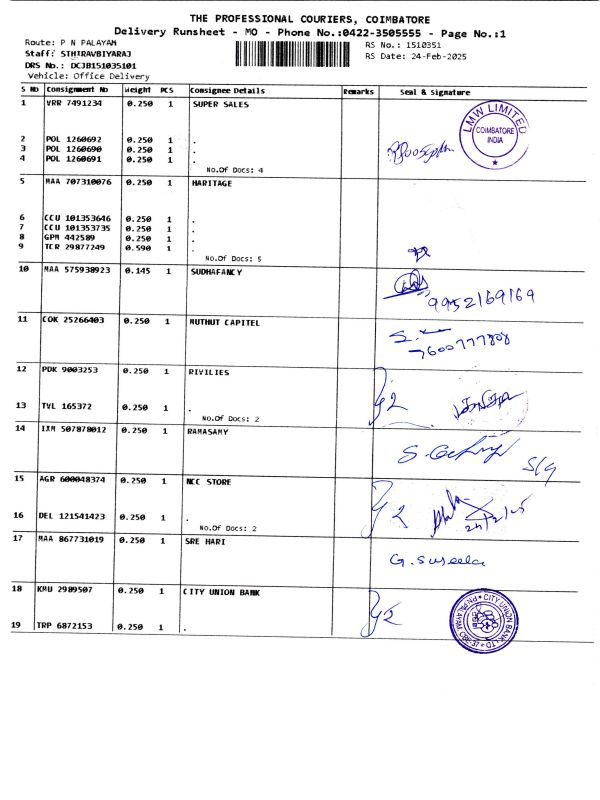 THE PROFESSIONAL COURIERS, COIMBATORE
Delivery Runsheet - MO - Phone No.:0422-3505555 - Page No.:1
Route: P N PALAYAM
RS No.: 1510351
Staff: STHIRAVBIYARAJ
RS Date: 24-Feb-2025
DRS No.: DCJB151035101
Vehicle: Office Delivery
S No Consignment No Weight PCS Consignee Details Remarks Seal & Signature
1 VRR 7491234 0.250 1 SUPER SALES
LMW LIMITED
COIMBATORE
INDIA
2 POL 1260692 0.250 1 .
3 POL 1260690 0.250 1 .
4 POL 1260691 0.250 1 .
No.Of Docs: 4
5 MAA 707310076 0.250 1 HARITAGE
6 CCU 101353646 0.250 1 .
7 CCU 101353735 0.250 1 .
8 GPM 442589 0.250 1 .
9 TCR 29877249 0.590 1 .
No.Of Docs: 5
10 MAA 575938923 0.145 1 SUDHAFANCY
9952169169
11 COK 25266403 0.250 1 MUTHUT CAPITEL
7600777808
12 PDK 9003253 0.250 1 RIVILIES
13 TVL 165372 0.250 1 .
No.Of Docs: 2
14 IXM 507878012 0.250 1 RAMASAMY
15 AGR 600048374 0.250 1 NCC STORE
16 DEL 121541423 0.250 1 .
24/2/25
No.Of Docs: 2
17 MAA 867731019 0.250 1 SRE HARI
G. Suseela
18 KMU 2989507 0.250 1 CITY UNION BANK
CITY UNION BANK LTD
19 TRP 6872153 0.250 1 .